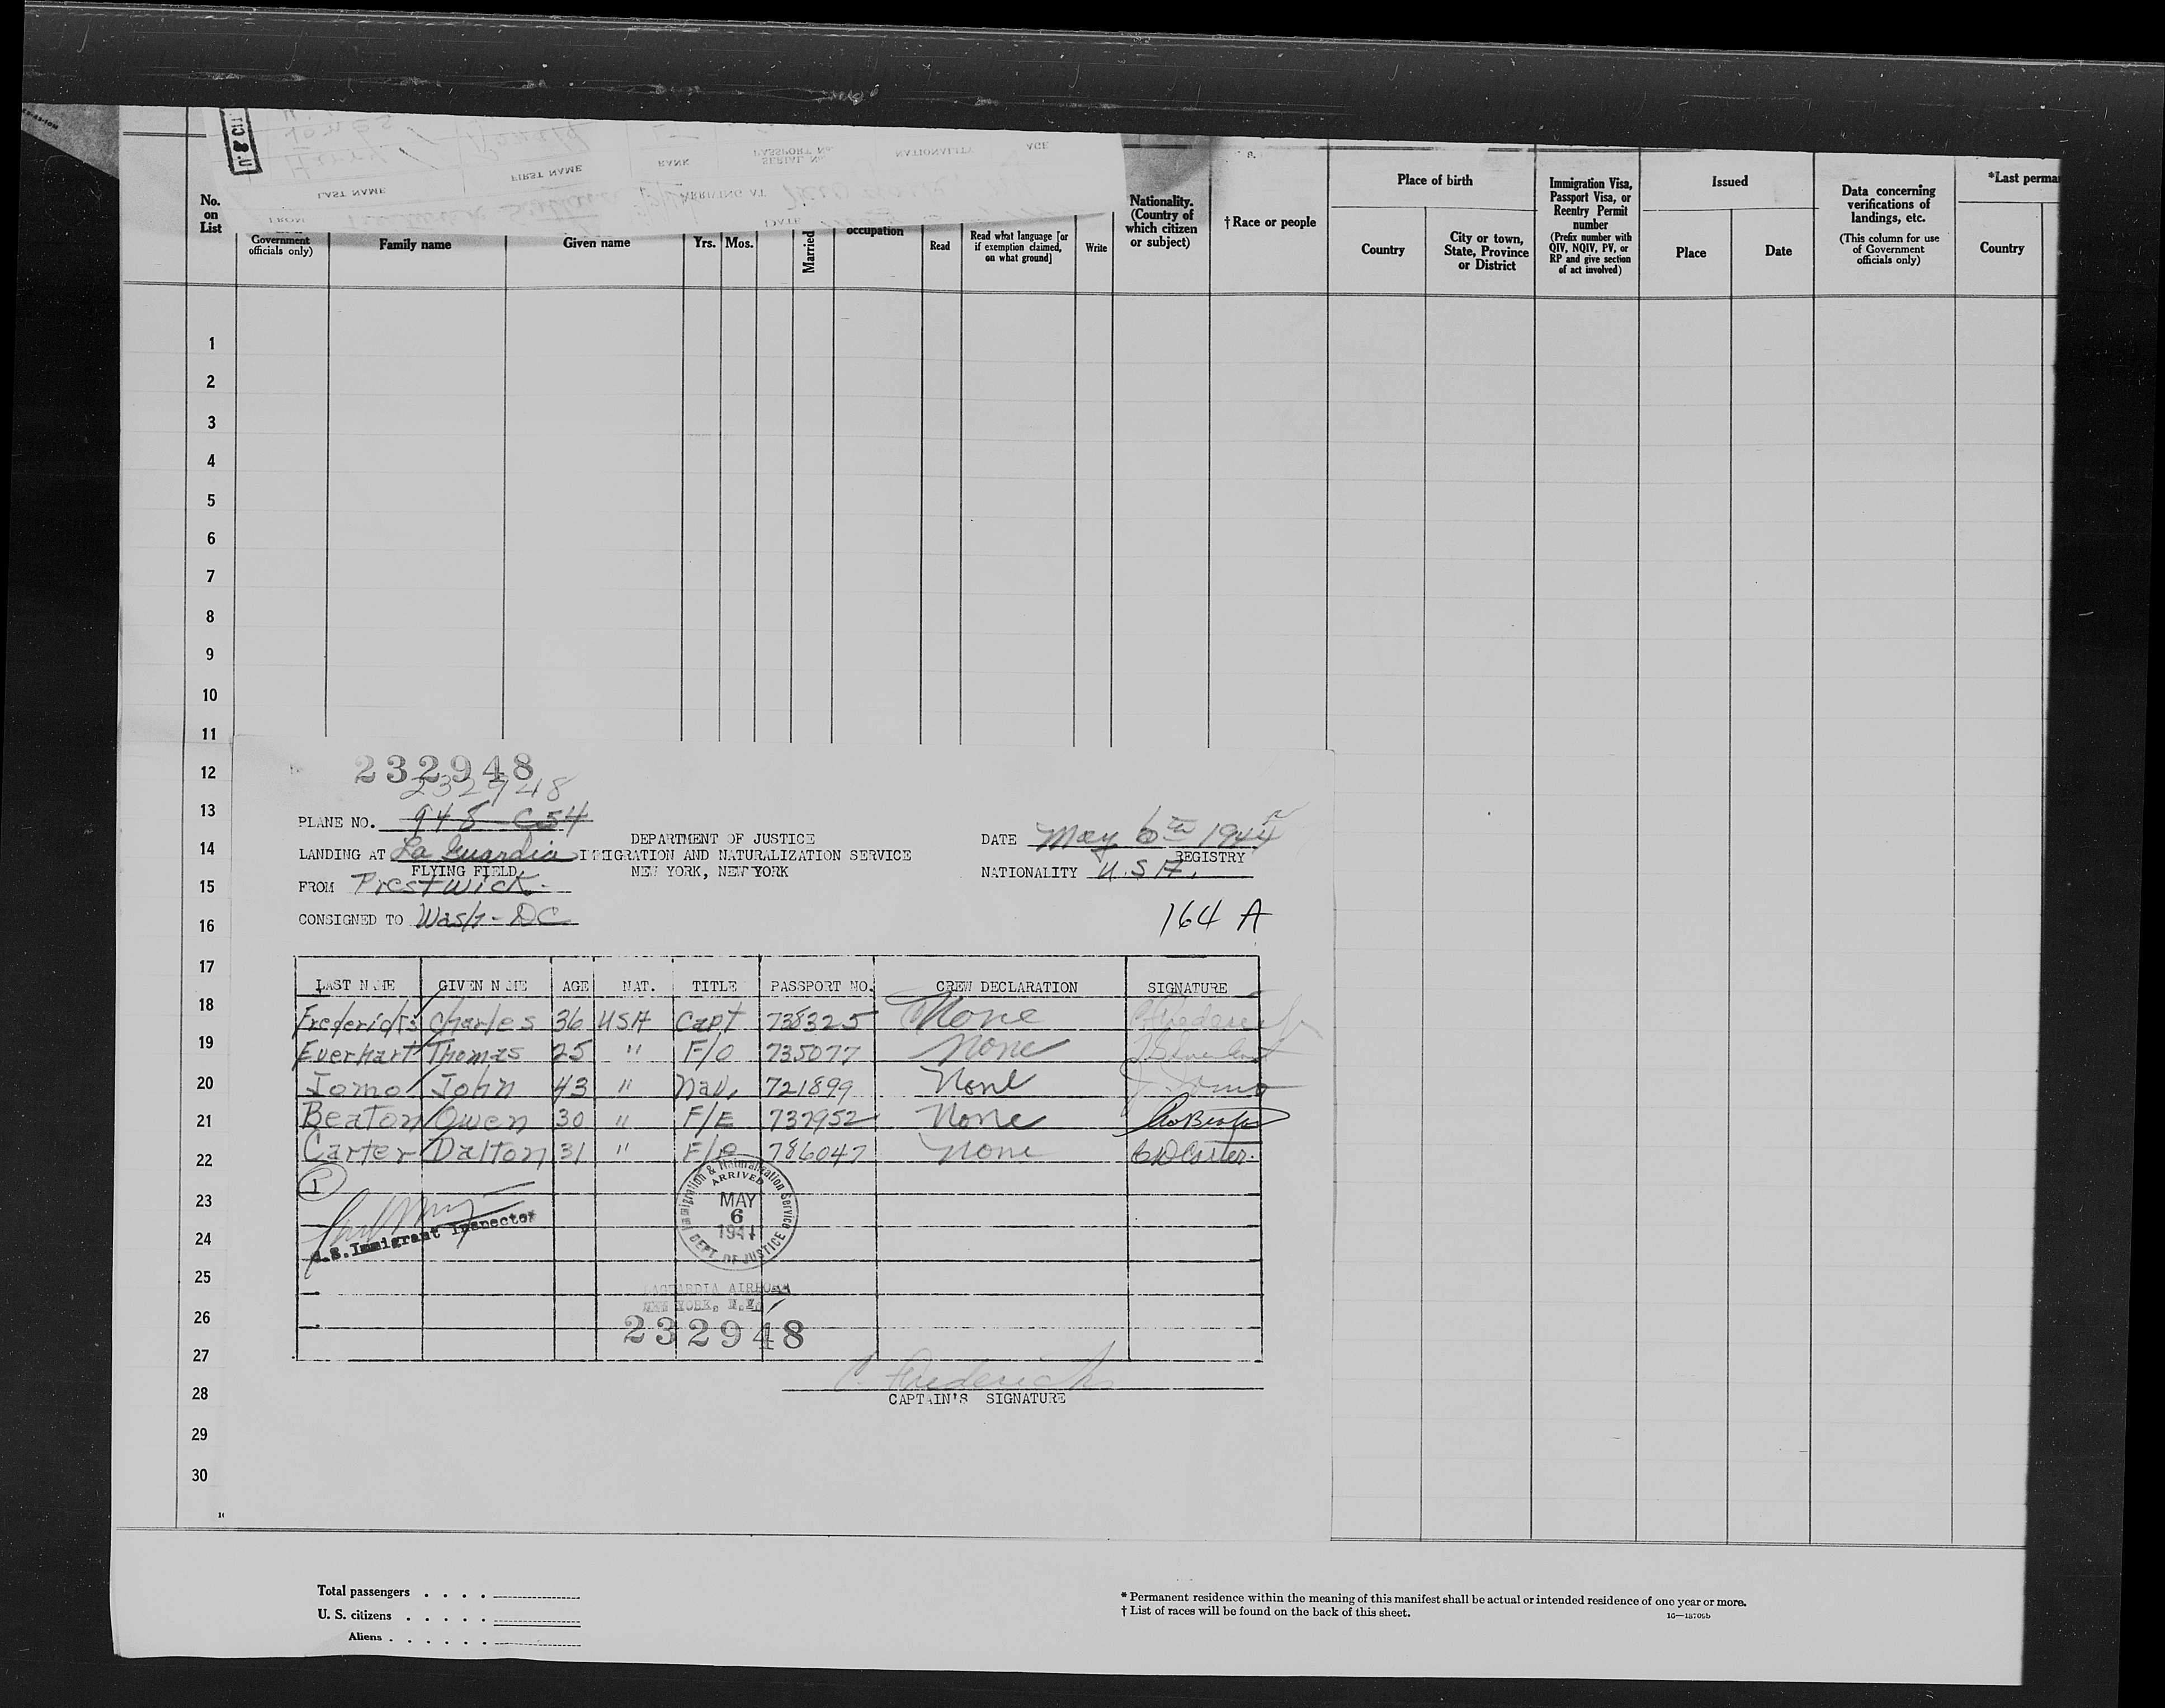 U. S. CIT
Jones
Harry / Ronald
LAST NAME FIRST NAME RANK PASSPORT No. SERIAL No. NATIONALITY AGE
FROM ARRIVING AT New York DATE
No. on List
Government officials only)
Family name
Given name
Yrs. Mos.
Married
occupation
Read
Read what language [or if exemption claimed, on what ground]
Write
Nationality. (Country of which citizen or subject)
† Race or people
Place of birth
Country
City or town, State, Province or District
Immigration Visa, Passport Visa, or Reentry Permit number
(Prefix number with QIV, NQIV, PV, or RP and give section of act involved)
Issued
Place
Date
Data concerning verifications of landings, etc.
(This column for use of Government officials only)
*Last perma
Country
1
2
3
4
5
6
7
8
9
10
11
12
13
14
15
16
17
18
19
20
21
22
23
24
25
26
27
28
29
30
232948
232948
PLANE NO. 948 C54
DEPARTMENT OF JUSTICE
DATE May 6th 1944
LANDING AT La Guardia IMMIGRATION AND NATURALIZATION SERVICE
REGISTRY
FLYING FIELD, NEW YORK, NEW YORK
NATIONALITY U.S.A.
FROM Prestwick
CONSIGNED TO Wash-DC
164 A
LAST NAME GIVEN NAME AGE NAT. TITLE PASSPORT NO. CREW DECLARATION SIGNATURE
Fredericks Charles 36 USA Capt 738325 None C Fredericks
Everhart Thomas 25 " F/O 735077 None T Everhart
Iomo John 43 " Nav. 721899 None J Iomo
Beaton Owen 30 " F/E 737952 None
Carter Dalton 31 " F/R 786047 None C D Carter.
1
U.S. Immigrant Inspector
Immigration & Naturalization Service
ARRIVED
MAY
6
1944
DEPT. OF JUSTICE
LAGUARDIA AIRPORT
NEW YORK, N.Y.
232948
C. Fredericks
CAPTAIN'S SIGNATURE
Total passengers . . . .
U. S. citizens . . . . .
Aliens . . . . . .
* Permanent residence within the meaning of this manifest shall be actual or intended residence of one year or more.
† List of races will be found on the back of this sheet.
16—18709b